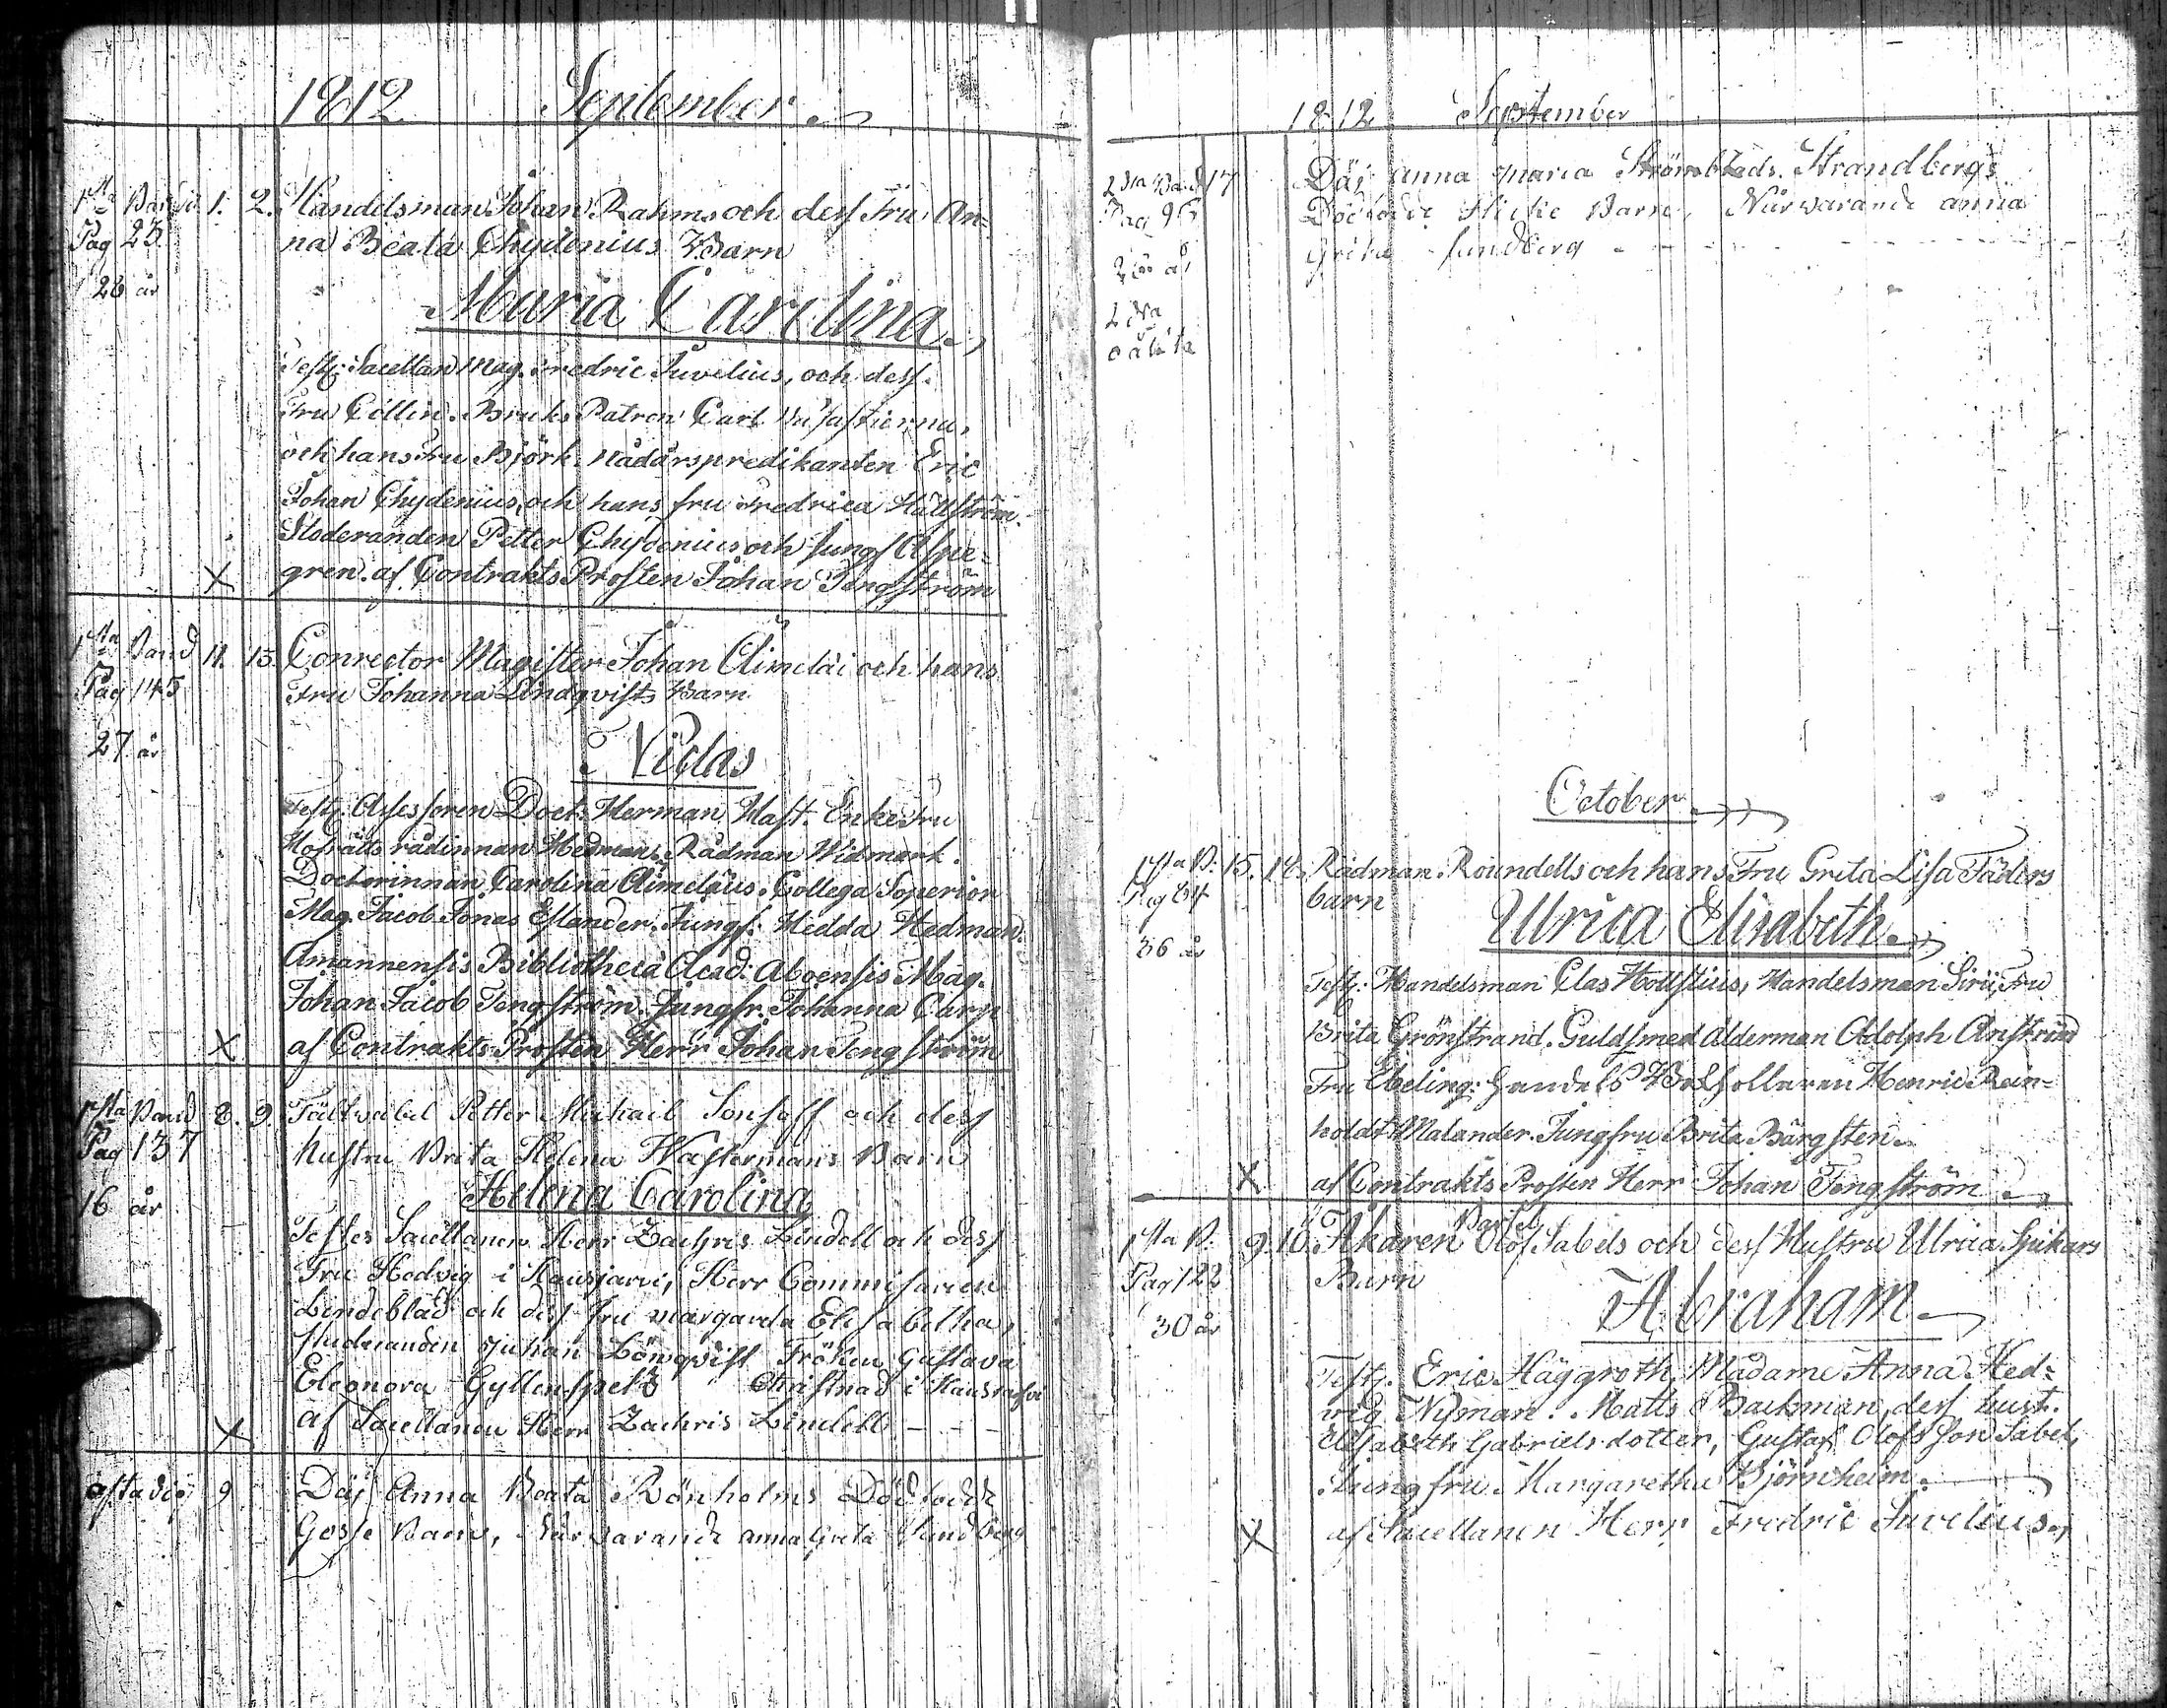 1812 September
1sta Band 1. 2. Handelsman Johan Rahms och dess Fru An=
Pag 25 na Beata Chydenius Barn
26 år
Maria Carolina
Test: Sacellan Mag. Fredric Juvelius, och dess
Fru Collin. Bruks Patron Carl
och hans Fru Björk. Nådårspredikanten Eric
Johan Chydenius, och hans fru Fredrica Hällström.
Stoderanden Petter Chydenius och Jungf Aspe=
X gren. af Contrakts Prosten Johan Tengström
1sta Band 11. 15. Conrector Magister Johan Aimelæi och hans
Pag 145 Fru Johanna Lindqvists Barn
27 år
Niclas
Test: Assessoren Doct: Herman Hast. Enke Fru
Hofrätts rådinnan Hedman. Rådman Widmark.
Doctorinnan Carolina Aimelæus. Collega Soperior
Mag. Jacob Jonas Estlander. Jungf: Hedda Hedman.
Amannensis Bibliotheca Acad: Aboensis Mag.
Johan Jacob Tengström. Jungfr. Johanna Carp
X af Contrakts Prosten Herr Johan Tengström
1sta Band 8. 9. Fältvabel Petter Michail och dess
Pag 137 hustru Brita Helena Wastermans Barn
Helena Carolina
16 år
Testes Sacellanen Herr Zachris Lindell och dess
Fru Hedvig i Kausjarvi, Herr Commisarien
Lindeblad och dess fru margareta Elisabetha,
studeranden Johan Lönqvist Fröken Gustava
Eleonora Gyllenspetz Christnad i
X af Sacellanen Herr Zachris Lindell - - -
9 Däj Anna Beata Rönholms Död född
Gosse Barn, Närvarande anna Greta Sundberg
1812 September
2dra Band 17 Däj anna maria Strömblads Strandbergs
Pag 95 Död födde Flicke Barn, Närvarande anna
Greta Sundberg - - - - - -
2dra
October
1sta B: 15. 18. Rådman Roundells och hans Fru Greta Lisa Fäders
Pag barn
Ulrica Elisabeth
36 år
Test: Handelsman Clas Hollstius, Handelsman Fru
Brita Grönstrand. Guldsmed Ålderman Adolph
Fru Ebeling: Handels Henric Rein=
holdt Malander. Jungfru Brita Bärgsten.
X af Contrakts Prosten Herr Johan Tengström
1sta B: 9. 10. Åkaren Olof Sabels och dess Hustru Ulrica Sjukars
Pag 122 Barn
Abraham
30 år
Test: Eric Häggroth, Madame Anna Hed=
vig Nyman. Matts Backman, dess hust.
Elisabeth Gabriels dotter, Gustaf Olofsson Sabel,
Jungfru Margaretha Björnheim.
X af Sacellanen Herr Fredric Juvelius